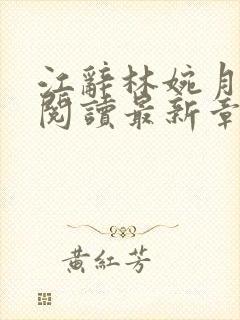 江辭林婉月
閱讀最新章
黃紅芳